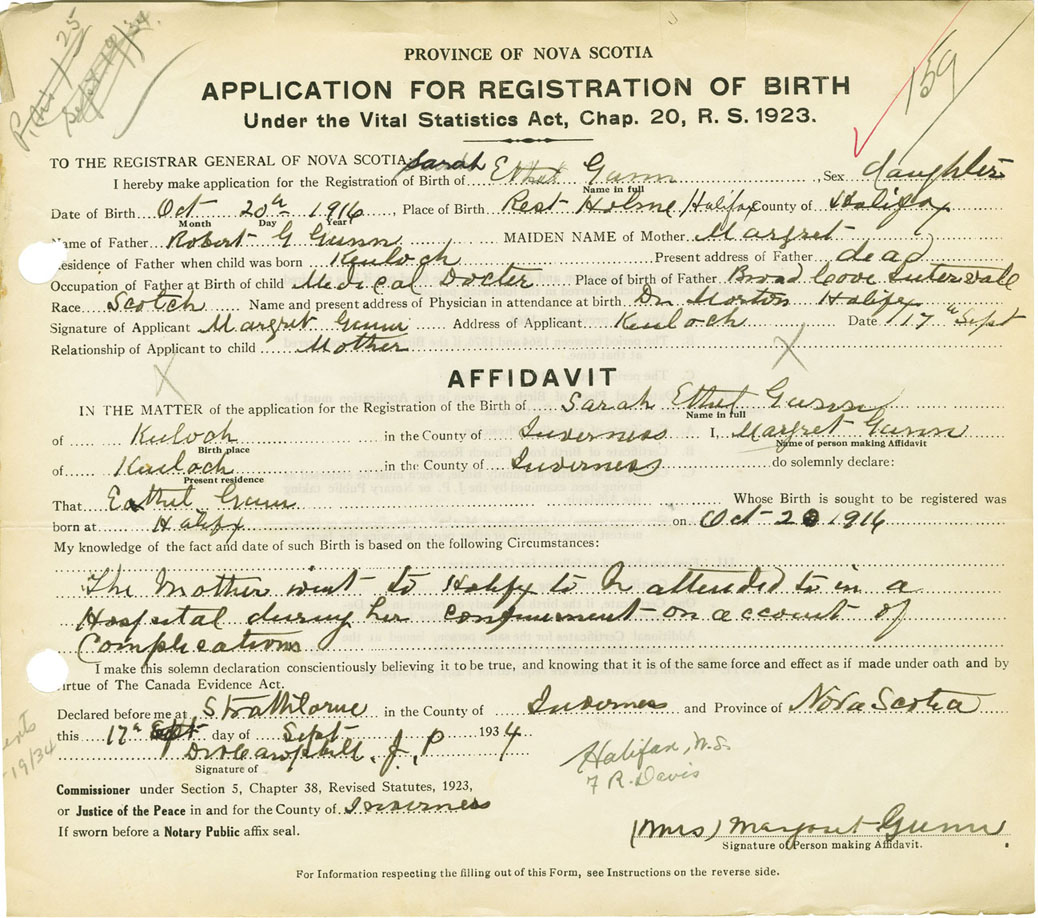 25
Sept 19/34
159
PROVINCE OF NOVA SCOTIA
APPLICATION FOR REGISTRATION OF BIRTH
Under the Vital Statistics Act, Chap. 20, R. S. 1923.
TO THE REGISTRAR GENERAL OF NOVA SCOTIA: Sarah
I hereby make application for the Registration of Birth of Ethel Gunn, Sex daughter
Name in full
Date of Birth Oct 20th 1916, Place of Birth Rest Holme, Halifax County of Halifax
Month Day Year
Name of Father Robert G Gunn MAIDEN NAME of Mother Margret
Residence of Father when child was born Kenloch Present address of Father dead
Occupation of Father at Birth of child Medical Docter Place of birth of Father Broad Cove Intervale
Race Scotch Name and present address of Physician in attendance at birth Dr Morton Halifx
Signature of Applicant Margret Gunn Address of Applicant Kenloch Date 17th Sept
Relationship of Applicant to child Mother
X X
AFFIDAVIT
IN THE MATTER of the application for the Registration of the Birth of Sarah Ethel Gunn
Name in full
of Kenloch in the County of Inverness I, Margret Gunn
Birth place Name of person making Affidavit
of Kenloch in the County of Inverness do solemnly declare:
Present residence
That Eathel Gunn Whose Birth is sought to be registered was
born at Halifx on Oct 20 1916
My knowledge of the fact and date of such Birth is based on the following Circumstances:
The Mother went to Halifx to be attended to in a
Hospital during her confinement on account of
Complications
I make this solemn declaration conscientiously believing it to be true, and knowing that it is of the same force and effect as if made under oath and by
virtue of The Canada Evidence Act.
Declared before me at Strathlorne in the County of Inverness and Province of Nova Scotia
this 17th day of Sept 1934
Campbell J. P
Signature of
19/34
Halifax, N.S.
F R. Davis
Commissioner under Section 5, Chapter 38, Revised Statutes, 1923,
or Justice of the Peace in and for the County of Inverness
If sworn before a Notary Public affix seal.
(Mrs) Margaret Gunn
Signature of Person making Affidavit.
For Information respecting the filling out of this Form, see Instructions on the reverse side.